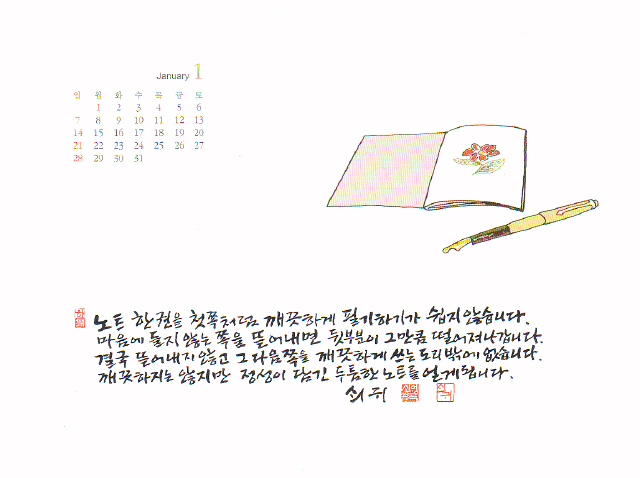 January 1
일 월 화 수 목 금 토
1 2 3 4 5 6
7 8 9 10 11 12 13
14 15 16 17 18 19 20
21 22 23 24 25 26 27
28 29 30 31
노트 한권을 첫쪽처럼 깨끗하게 필기하기가 쉽지 않습니다.
마음에 들지 않는 쪽을 뜯어내면 뒷부분이 그만큼 떨어져나갑니다.
결국 뜯어내지 않고 그 다음쪽을 깨끗하게 쓰는 도리밖에 없습니다.
깨끗하지는 않지만 정성이 담긴 두툼한 노트를 얻게 됩니다.
쇠귀